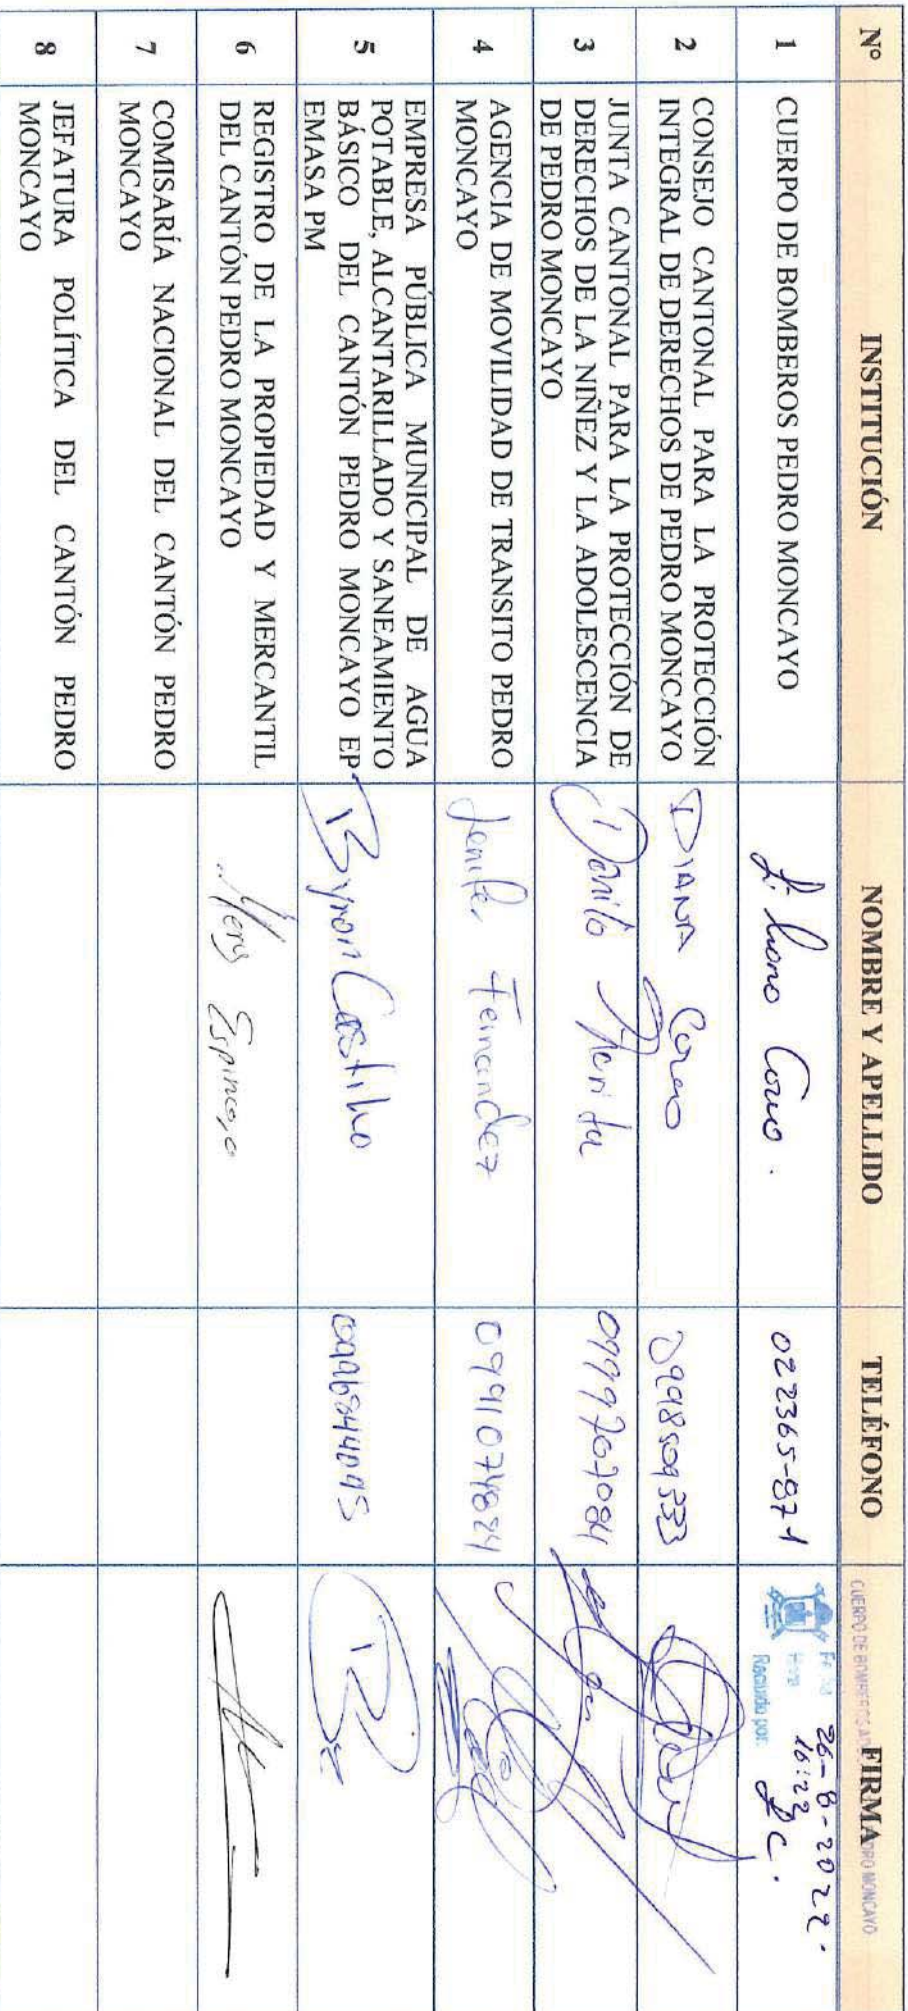 N° INSTITUCIÓN NOMBRE Y APELLIDO TELÉFONO FIRMA
CUERPO DE BOMBEROS PEDRO MONCAYO
1 CUERPO DE BOMBEROS PEDRO MONCAYO 022365-871
26-8-2022.
Hora 16:22
Recibido por:
2 CONSEJO CANTONAL PARA LA PROTECCIÓN
INTEGRAL DE DERECHOS DE PEDRO MONCAYO
DIANA 0998509333
3 JUNTA CANTONAL PARA LA PROTECCIÓN DE
DERECHOS DE LA NIÑEZ Y LA ADOLESCENCIA
DE PEDRO MONCAYO
Danilo 0999707084
4 AGENCIA DE MOVILIDAD DE TRANSITO PEDRO
MONCAYO
Jenifer Fernandez 0991074824
5 EMPRESA PÚBLICA MUNICIPAL DE AGUA
POTABLE, ALCANTARILLADO Y SANEAMIENTO
BÁSICO DEL CANTÓN PEDRO MONCAYO EP
EMASA PM
Byron Castillo
6 REGISTRO DE LA PROPIEDAD Y MERCANTIL
DEL CANTÓN PEDRO MONCAYO
Mery Espinoza
7 COMISARÍA NACIONAL DEL CANTÓN PEDRO
MONCAYO
8 JEFATURA POLÍTICA DEL CANTÓN PEDRO
MONCAYO